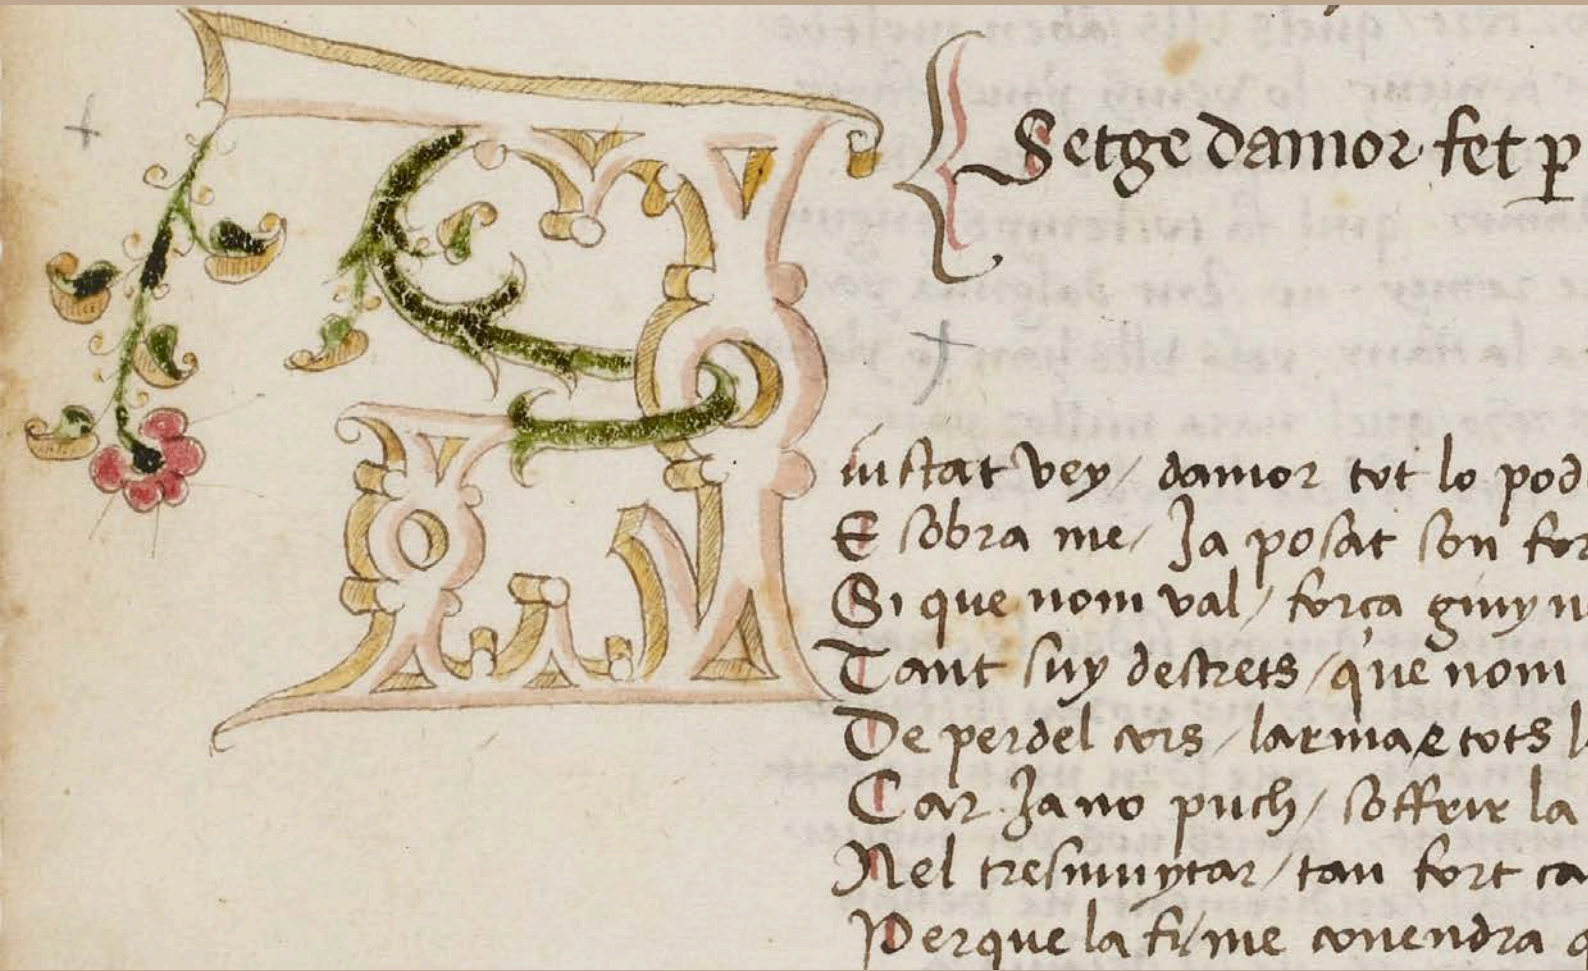 Setge damor fet p
A
iustat vey / damor tot lo pod
E sobra me / Ja posat son for
Si que nom val / força giny n
Tant suy destrets / que nom
De perdel cors / larma e tots l
Car Ja no puch / soffrir la
Nel tresnuytar / tan fort ca
Perque la fi / me conendra q